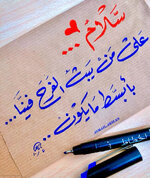 سَلامٌ ...
على مَن يبث الفرح فينا ...
بأبسط مايكون ..